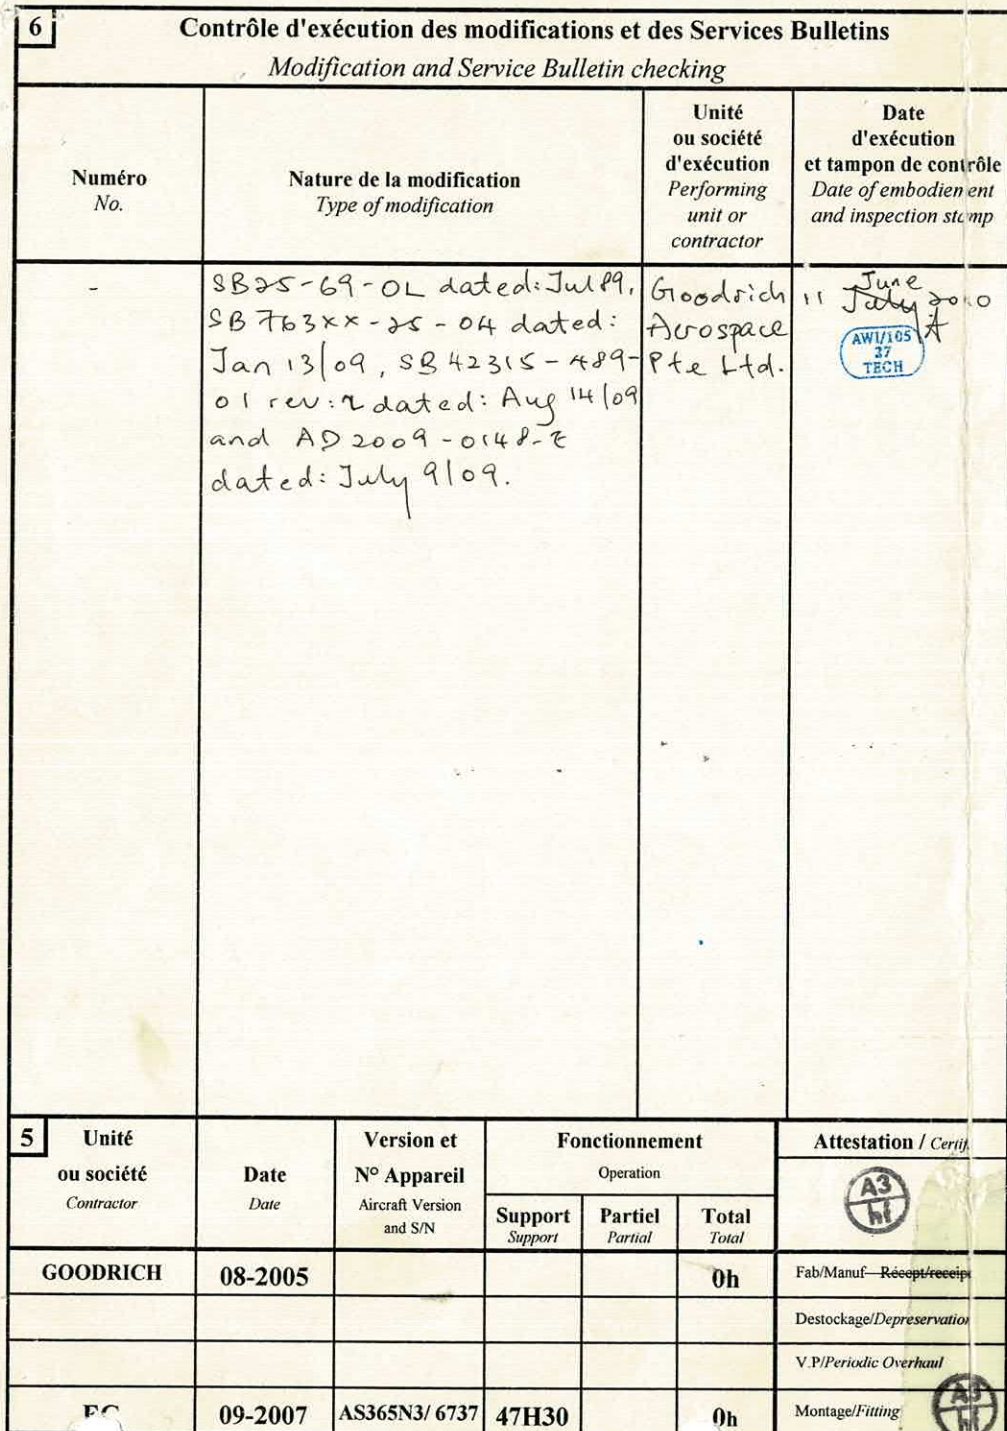 6 Contrôle d'exécution des modifications et des Services Bulletins
Modification and Service Bulletin checking
Numéro
No.
Nature de la modification
Type of modification
Unité
ou société
d'exécution
Performing
unit or
contractor
Date
d'exécution
et tampon de contrôle
Date of embodiement
and inspection stamp
-
SB25-69-OL dated: Jul 89,
SB 763XX-25-04 dated:
Jan 13/09, SB 42315-489-
01 rev: 2 dated: Aug 14/09
and AD 2009-0148-E
dated: July 9/09.
Goodrich
Aerospace
Pte Ltd.
June
11 July 2010
AWI/105
37
TECH
5 Unité
ou société
Contractor
Date
Date
Version et
N° Appareil
Aircraft Version
and S/N
Fonctionnement
Operation
Support
Support
Partiel
Partial
Total
Total
Attestation / Certif.
A3
hf
GOODRICH 08-2005 0h Fab/Manuf Récept/receipt
Destockage/Depreservation
V.P/Periodic Overhaul
EC 09-2007 AS365N3/ 6737 47H30 0h Montage/Fitting
A3
hf